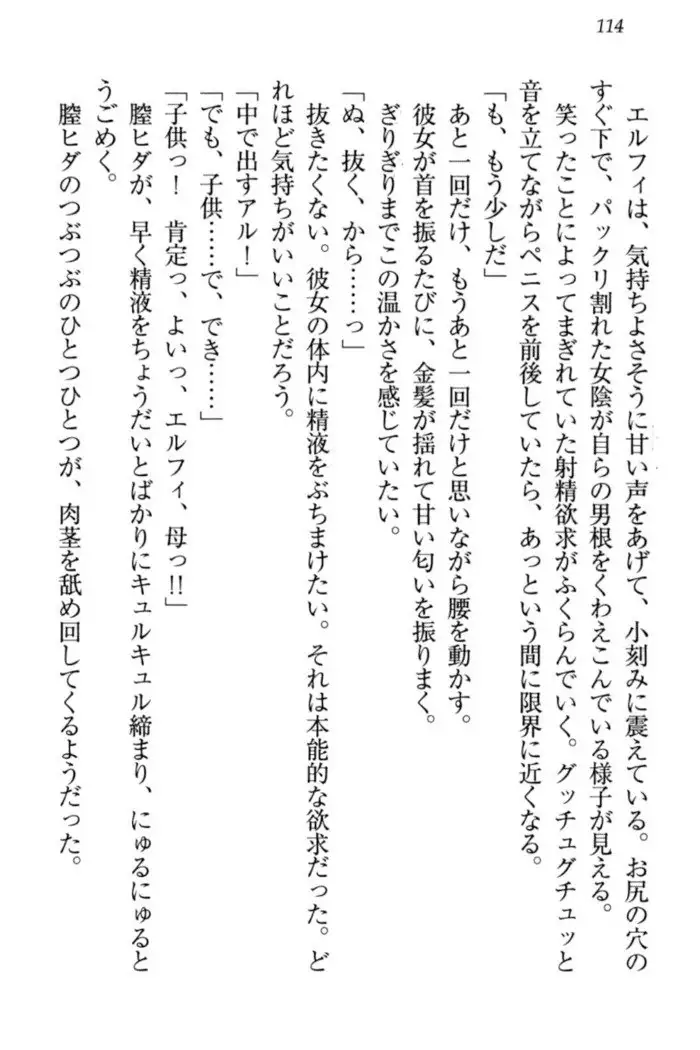 114
エルフィは、気持ちよさそうに甘い声をあげて、小刻みに震えている。お尻の穴の
すぐ下で、パックリ割れた女陰が自らの男根をくわえこんでいる様子が見える。
笑ったことによってまぎれていた射精欲求がふくらんでいく。グッチュグチュッと
音を立てながらペニスを前後していたら、あっという間に限界に近くなる。
「も、もう少しだ」
あと一回だけ、もうあと一回だけと思いながら腰を動かす。
彼女が首を振るたびに、金髪が揺れて甘い匂いを振りまく。
ぎりぎりまでこの温かさを感じていたい。
「ぬ、抜く、から……っ」
抜きたくない。彼女の体内に精液をぶちまけたい。それは本能的な欲求だった。ど
れほど気持ちがいいことだろう。
「中で出すアル！」
「でも、子供……で、でき……」
「子供っ！　肯定っ、よいっ、エルフィ、母っ!!」
膣ヒダが、早く精液をちょうだいとばかりにキュルキュル締まり、にゅるにゅると
うごめく。
膣ヒダのつぶつぶのひとつひとつが、肉茎を舐め回してくるようだった。